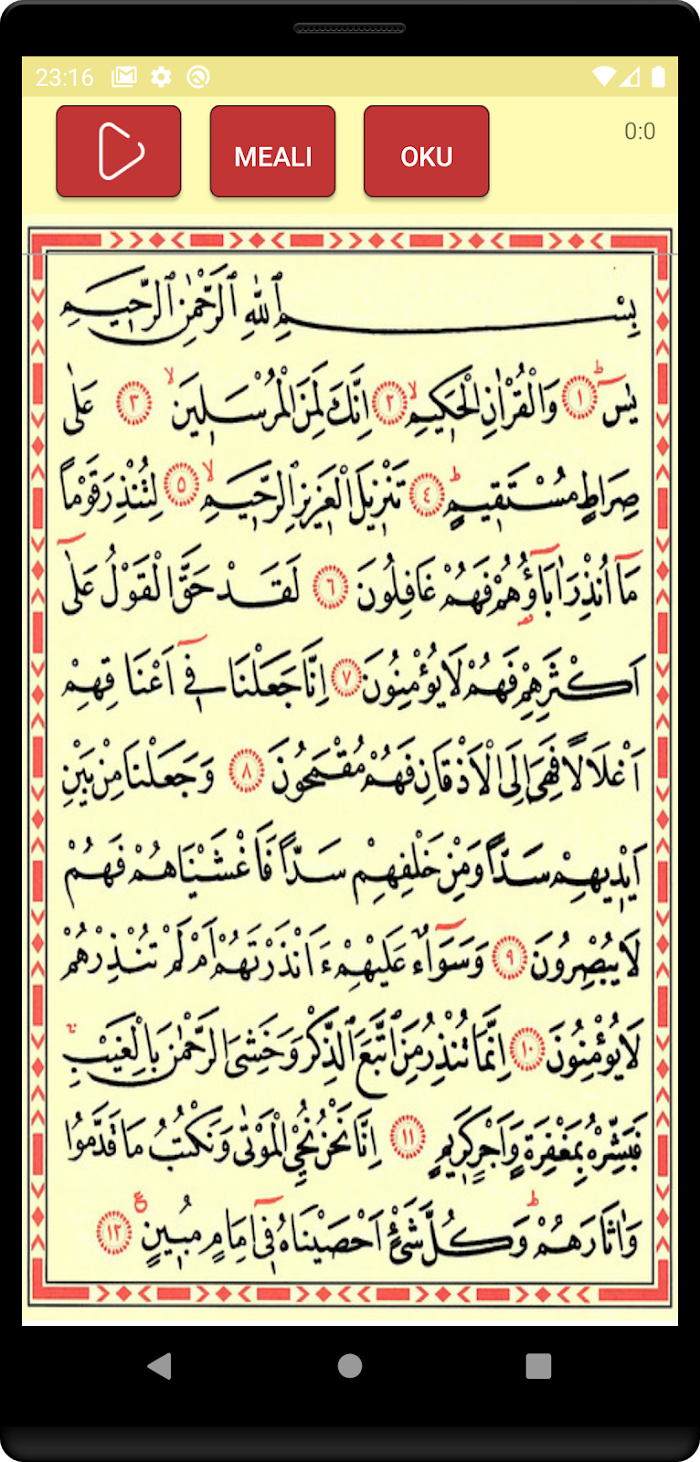 23:16
MEALI
OKU
0:0
بِسْمِ اللّٰهِ الرَّحْمٰنِ الرَّح۪يمِ
يٰسٓ ۜ ﴿١﴾ وَالْقُرْاٰنِ الْحَك۪يمِ ۙ ﴿٢﴾ اِنَّكَ لَمِنَ الْمُرْسَل۪ينَ ۙ ﴿٣﴾ عَلٰى
صِرَاطٍ مُسْتَق۪يمٍ ۜ ﴿٤﴾ تَنْز۪يلَ الْعَز۪يزِ الرَّح۪يمِ ۙ ﴿٥﴾ لِتُنْذِرَ قَوْماً
مَٓا اُنْذِرَ اٰبَٓاؤُ۬هُمْ فَهُمْ غَافِلُونَ ﴿٦﴾ لَقَدْ حَقَّ الْقَوْلُ عَلٰٓى
اَكْثَرِهِمْ فَهُمْ لَا يُؤْمِنُونَ ﴿٧﴾ اِنَّا جَعَلْنَا ف۪ٓي اَعْنَاقِهِمْ
اَغْلَالاً فَهِيَ اِلَى الْاَذْقَانِ فَهُمْ مُقْمَحُونَ ﴿٨﴾ وَجَعَلْنَا مِنْ بَيْنِ
اَيْد۪يهِمْ سَداًّ وَمِنْ خَلْفِهِمْ سَداًّ فَاَغْشَيْنَاهُمْ فَهُمْ
لَا يُبْصِرُونَ ﴿٩﴾ وَسَوَٓاءٌ عَلَيْهِمْ ءَاَنْذَرْتَهُمْ اَمْ لَمْ تُنْذِرْهُمْ
لَا يُؤْمِنُونَ ﴿١٠﴾ اِنَّمَا تُنْذِرُ مَنِ اتَّبَعَ الذِّكْرَ وَخَشِيَ الرَّحْمٰنَ بِالْغَيْبِۚ
فَبَشِّرْهُ بِمَغْفِرَةٍ وَاَجْرٍ كَر۪يمٍ ﴿١١﴾ اِنَّا نَحْنُ نُحْيِ الْمَوْتٰى وَنَكْتُبُ مَا قَدَّمُوا
وَاٰثَارَهُمْ ۜ وَكُلَّ شَيْءٍ اَحْصَيْنَاهُ ف۪ٓي اِمَامٍ مُب۪ينٍ ۟ ﴿١٢﴾